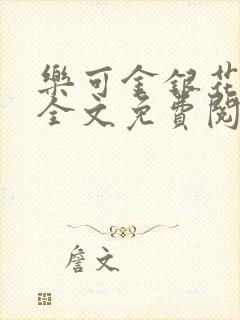 樂可金銀花
全文免費閱
詹文